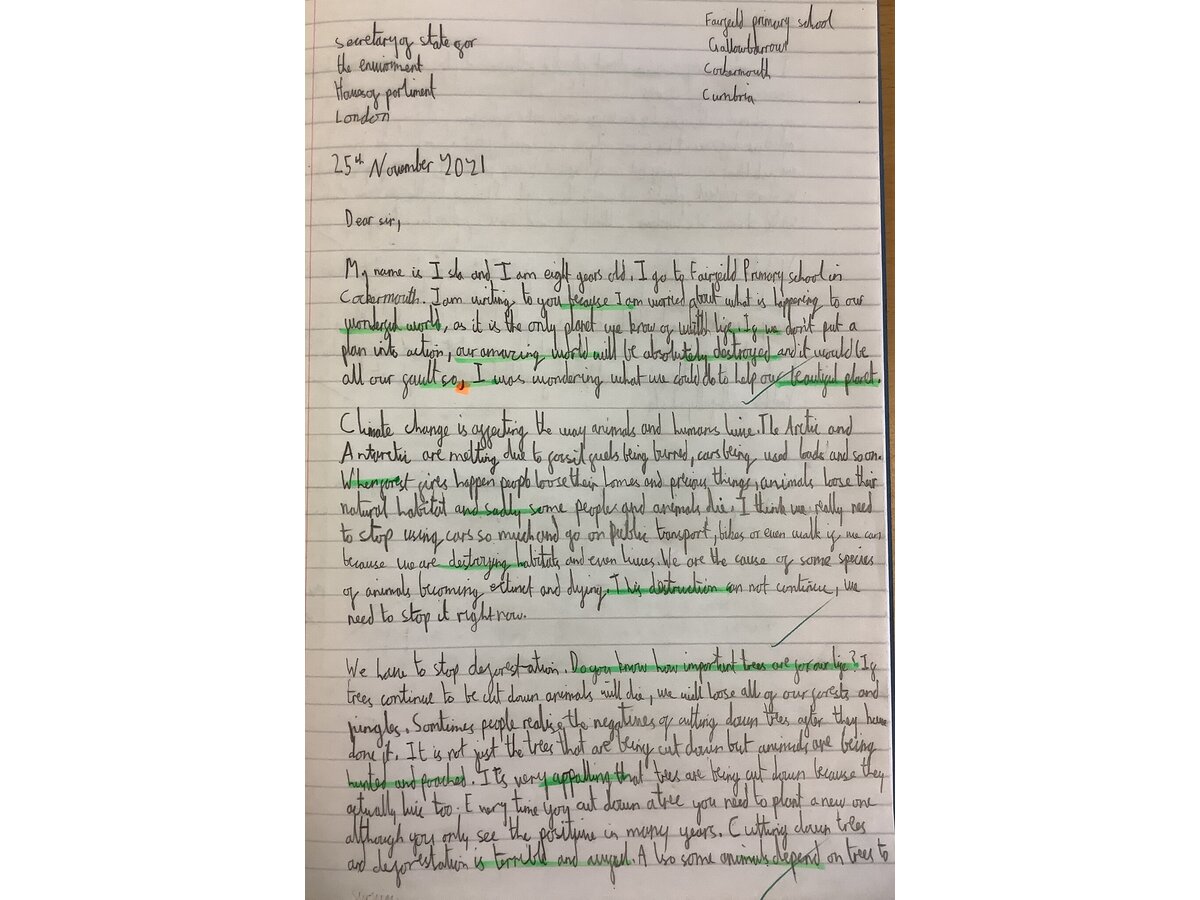 Fairfeild primary school
Gallowbarrow
Cockermouth
Cumbria
secretary of state for
the enviorment
Houses of parliment
London
25th November 2021
Dear sir,
My name is Isla and I am eight years old. I go to Fairfeild Primary school in
Cockermouth. I am writing to you because I am worried about what is happening to our
wonderful world, as it is the only planet we know of with life. If we don't put a
plan into action, our amazing world will be absolutely destroyed and it would be
all our fault so, I was wondering what we could do to help our beautiful planet.
Climate change is affecting the way animals and humans live. The Arctic and
Antarctic are melting due to fossil fuels being burned, cars being used loads and so on.
When forest fires happen people loose their homes and precious things, animals loose their
natural habitat and sadly some peoples and animals die. I think we really need
to stop using cars so much and go on public transport, bikes or even walk if we can
because we are destroying habitats and even lives. We are the cause of some species
of animals becoming extinct and dying. This destruction can not continue, we
need to stop it right now.
We have to stop deforestation. Do you know how important trees are for our life? If
trees continue to be cut down animals will die, we will loose all of our forests and
jungles. Somtimes people realise the negatives of cutting down trees after they have
done it. It is not just the trees that are being cut down but animals are being
hunted and poached. It's very appalling that trees are being cut down because they
actually live too. Every time you cut down a tree you need to plant a new one
although you only see the positive in many years. Cutting down trees
and deforestation is terrible and awful. Also some animals depend on trees to